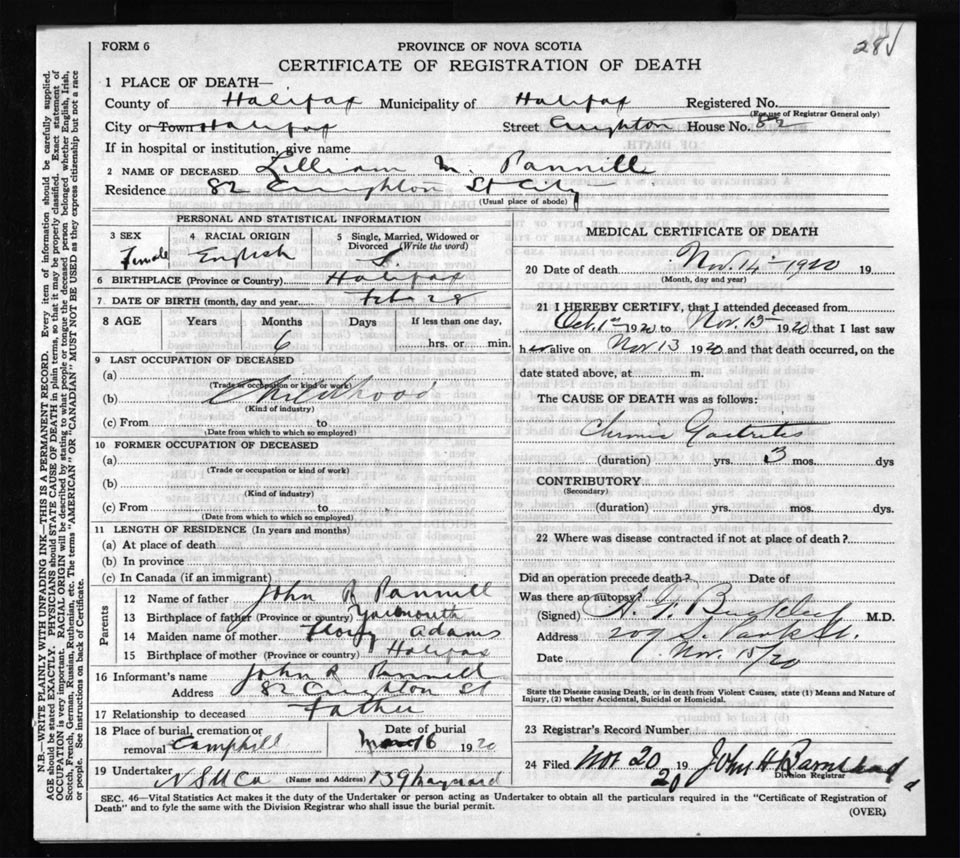 28
FORM 6
PROVINCE OF NOVA SCOTIA
CERTIFICATE OF REGISTRATION OF DEATH
1 PLACE OF DEATH—
County of Halifax Municipality of Halifax Registered No.
(For use of Registrar General only)
City or Town Halifax Street Creighton House No. 82
If in hospital or institution, give name
2 NAME OF DECEASED Lilliam M. Pannill
Residence 82 Creighton St City
(Usual place of abode)
PERSONAL AND STATISTICAL INFORMATION
3 SEX Female
4 RACIAL ORIGIN English
5 Single, Married, Widowed or Divorced (Write the word) S.
6 BIRTHPLACE (Province or Country) Halifax
7 DATE OF BIRTH (month, day and year) Feb 28
8 AGE Years Months Days If less than one day,
6 hrs. or min.
9 LAST OCCUPATION OF DECEASED
(a)
(Trade or occupation or kind of work)
(b) Childhood
(Kind of industry)
(c) From to
(Date from which to which so employed)
10 FORMER OCCUPATION OF DECEASED
(a)
(Trade or occupation or kind of work)
(b)
(Kind of industry)
(c) From to
(Date from which to which so employed)
11 LENGTH OF RESIDENCE (In years and months)
(a) At place of death
(b) In province
(c) In Canada (if an immigrant)
Parents
12 Name of father John R Pannill
13 Birthplace of father (Province or country) Yarmouth
14 Maiden name of mother Adams
15 Birthplace of mother (Province or country) Halifax
16 Informant's name John R Pannill
Address 82 Creighton St
17 Relationship to deceased Father
18 Place of burial, cremation or removal Camphill
Date of burial 16 1920
19 Undertaker N S U Co (Name and Address) 139 Maynard
MEDICAL CERTIFICATE OF DEATH
20 Date of death Nov. 14 - 1920 19
(Month, day and year)
21 I HEREBY CERTIFY, that I attended deceased from
Oct. 1st 1920 to Nov. 15 1920 that I last saw
her alive on Nov 13 1920 and that death occurred, on the
date stated above, at m.
The CAUSE OF DEATH was as follows:
Chronic Gastritis
(duration) yrs. 3 mos. dys
CONTRIBUTORY
(Secondary)
(duration) yrs. mos. dys.
22 Where was disease contracted if not at place of death?
Did an operation precede death? Date of
Was there an autopsy?
(Signed) M.D.
Address 209 S. Park St.
Date Nov. 15/20
State the Disease causing Death, or in death from Violent Causes, state (1) Means and Nature of
Injury, (2) whether Accidental, Suicidal or Homicidal.
23 Registrar's Record Number
24 Filed Nov 20 19 20 John H Barnstead
Division Registrar
SEC. 46—Vital Statistics Act makes it the duty of the Undertaker or person acting as Undertaker to obtain all the particulars required in the "Certificate of Registration of
Death" and to fyle the same with the Division Registrar who shall issue the burial permit.
(OVER)
N.B.—WRITE PLAINLY WITH UNFADING INK—THIS IS A PERMANENT RECORD. Every item of information should be carefully supplied.
AGE should be stated EXACTLY. PHYSICIANS should STATE CAUSE OF DEATH in plain terms, so that it may be properly classified. Exact statement of
OCCUPATION is very important. RACIAL ORIGIN will be described by stating to what people or tongue the deceased person belonged whether English, Irish,
Scotch, French, German, Russian, Ruthenian, etc. The terms "AMERICAN" OR "CANADIAN" MUST NOT BE USED as they express citizenship but not a race
or people. See instructions on back of Certificate.